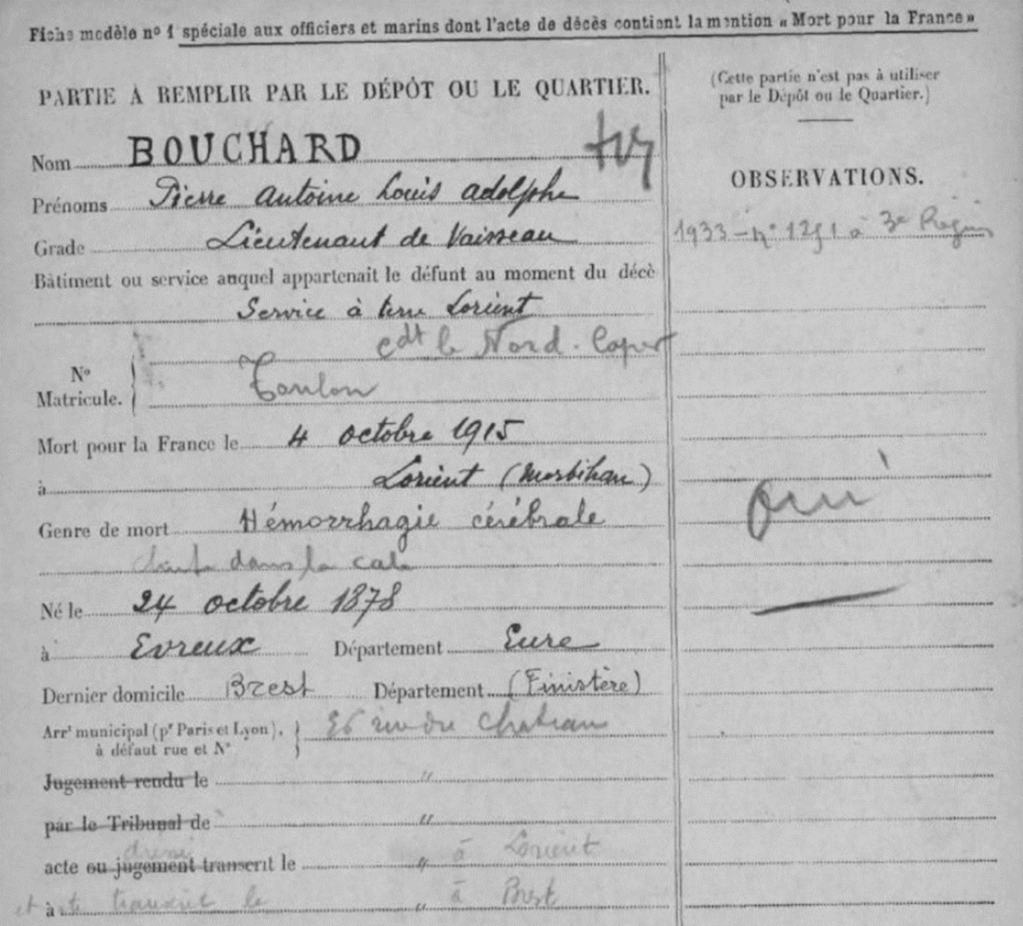 Fiche modèle nº 1 spéciale aux officiers et marins dont l'acte de décès contient la mention « Mort pour la France »
PARTIE À REMPLIR PAR LE DÉPÔT OU LE QUARTIER.
Nom BOUCHARD
Prénoms Pierre Antoine Louis Adolphe
Grade Lieutenant de Vaisseau
Bâtiment ou service auquel appartenait le défunt au moment du décè
Service à terre Lorient
cdt le Nord-Caper
Nº Matricule. Toulon
Mort pour la France le 4 octobre 1915
à Lorient (Morbihan)
Genre de mort Hémorrhagie cérébrale
chute dans la cale
Né le 24 octobre 1878
à Evreux Département Eure
Dernier domicile Brest Département (Finistère)
Arrt municipal (pr Paris et Lyon), à défaut rue et Nº 26 rue du Chateau
Jugement rendu le "
par le Tribunal de "
acte ou jugement transcrit le " à Lorient
dressé
et à acte transcrit le " à Brest
(Cette partie n'est pas à utiliser
par le Dépôt ou le Quartier.)
OBSERVATIONS.
1933 - nº 1291 à 3e Région
oui